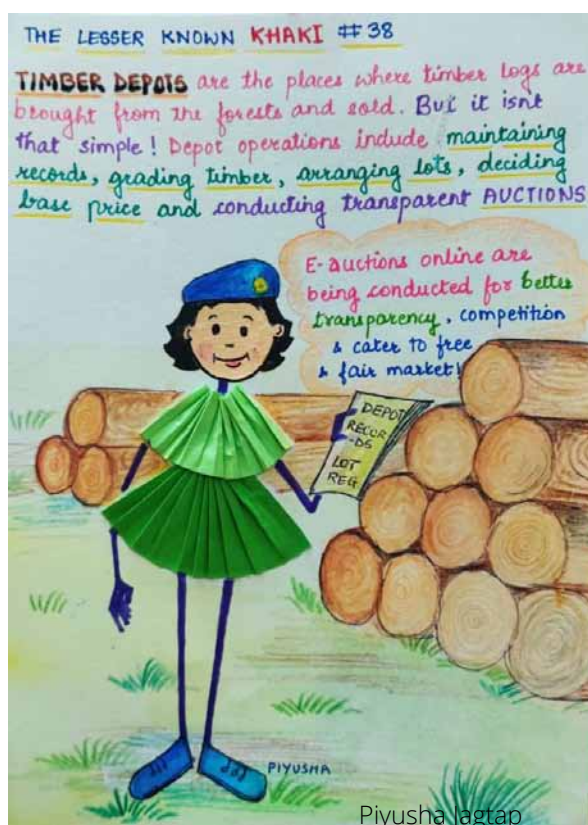 THE LESSER KNOWN KHAKI #38
TIMBER DEPOTS are the places where timber logs are
brought from the forests and sold. But it isnt
that simple! Depot operations include maintaining
records, grading timber, arranging lots, deciding
base price and conducting transparent AUCTIONS
E-auctions online are
being conducted for better
transparency, competition
& cater to free
& fair market!
DEPOT
RECOR
-DS
LOT
REG
PIYUSHA
Piyusha Jagtap